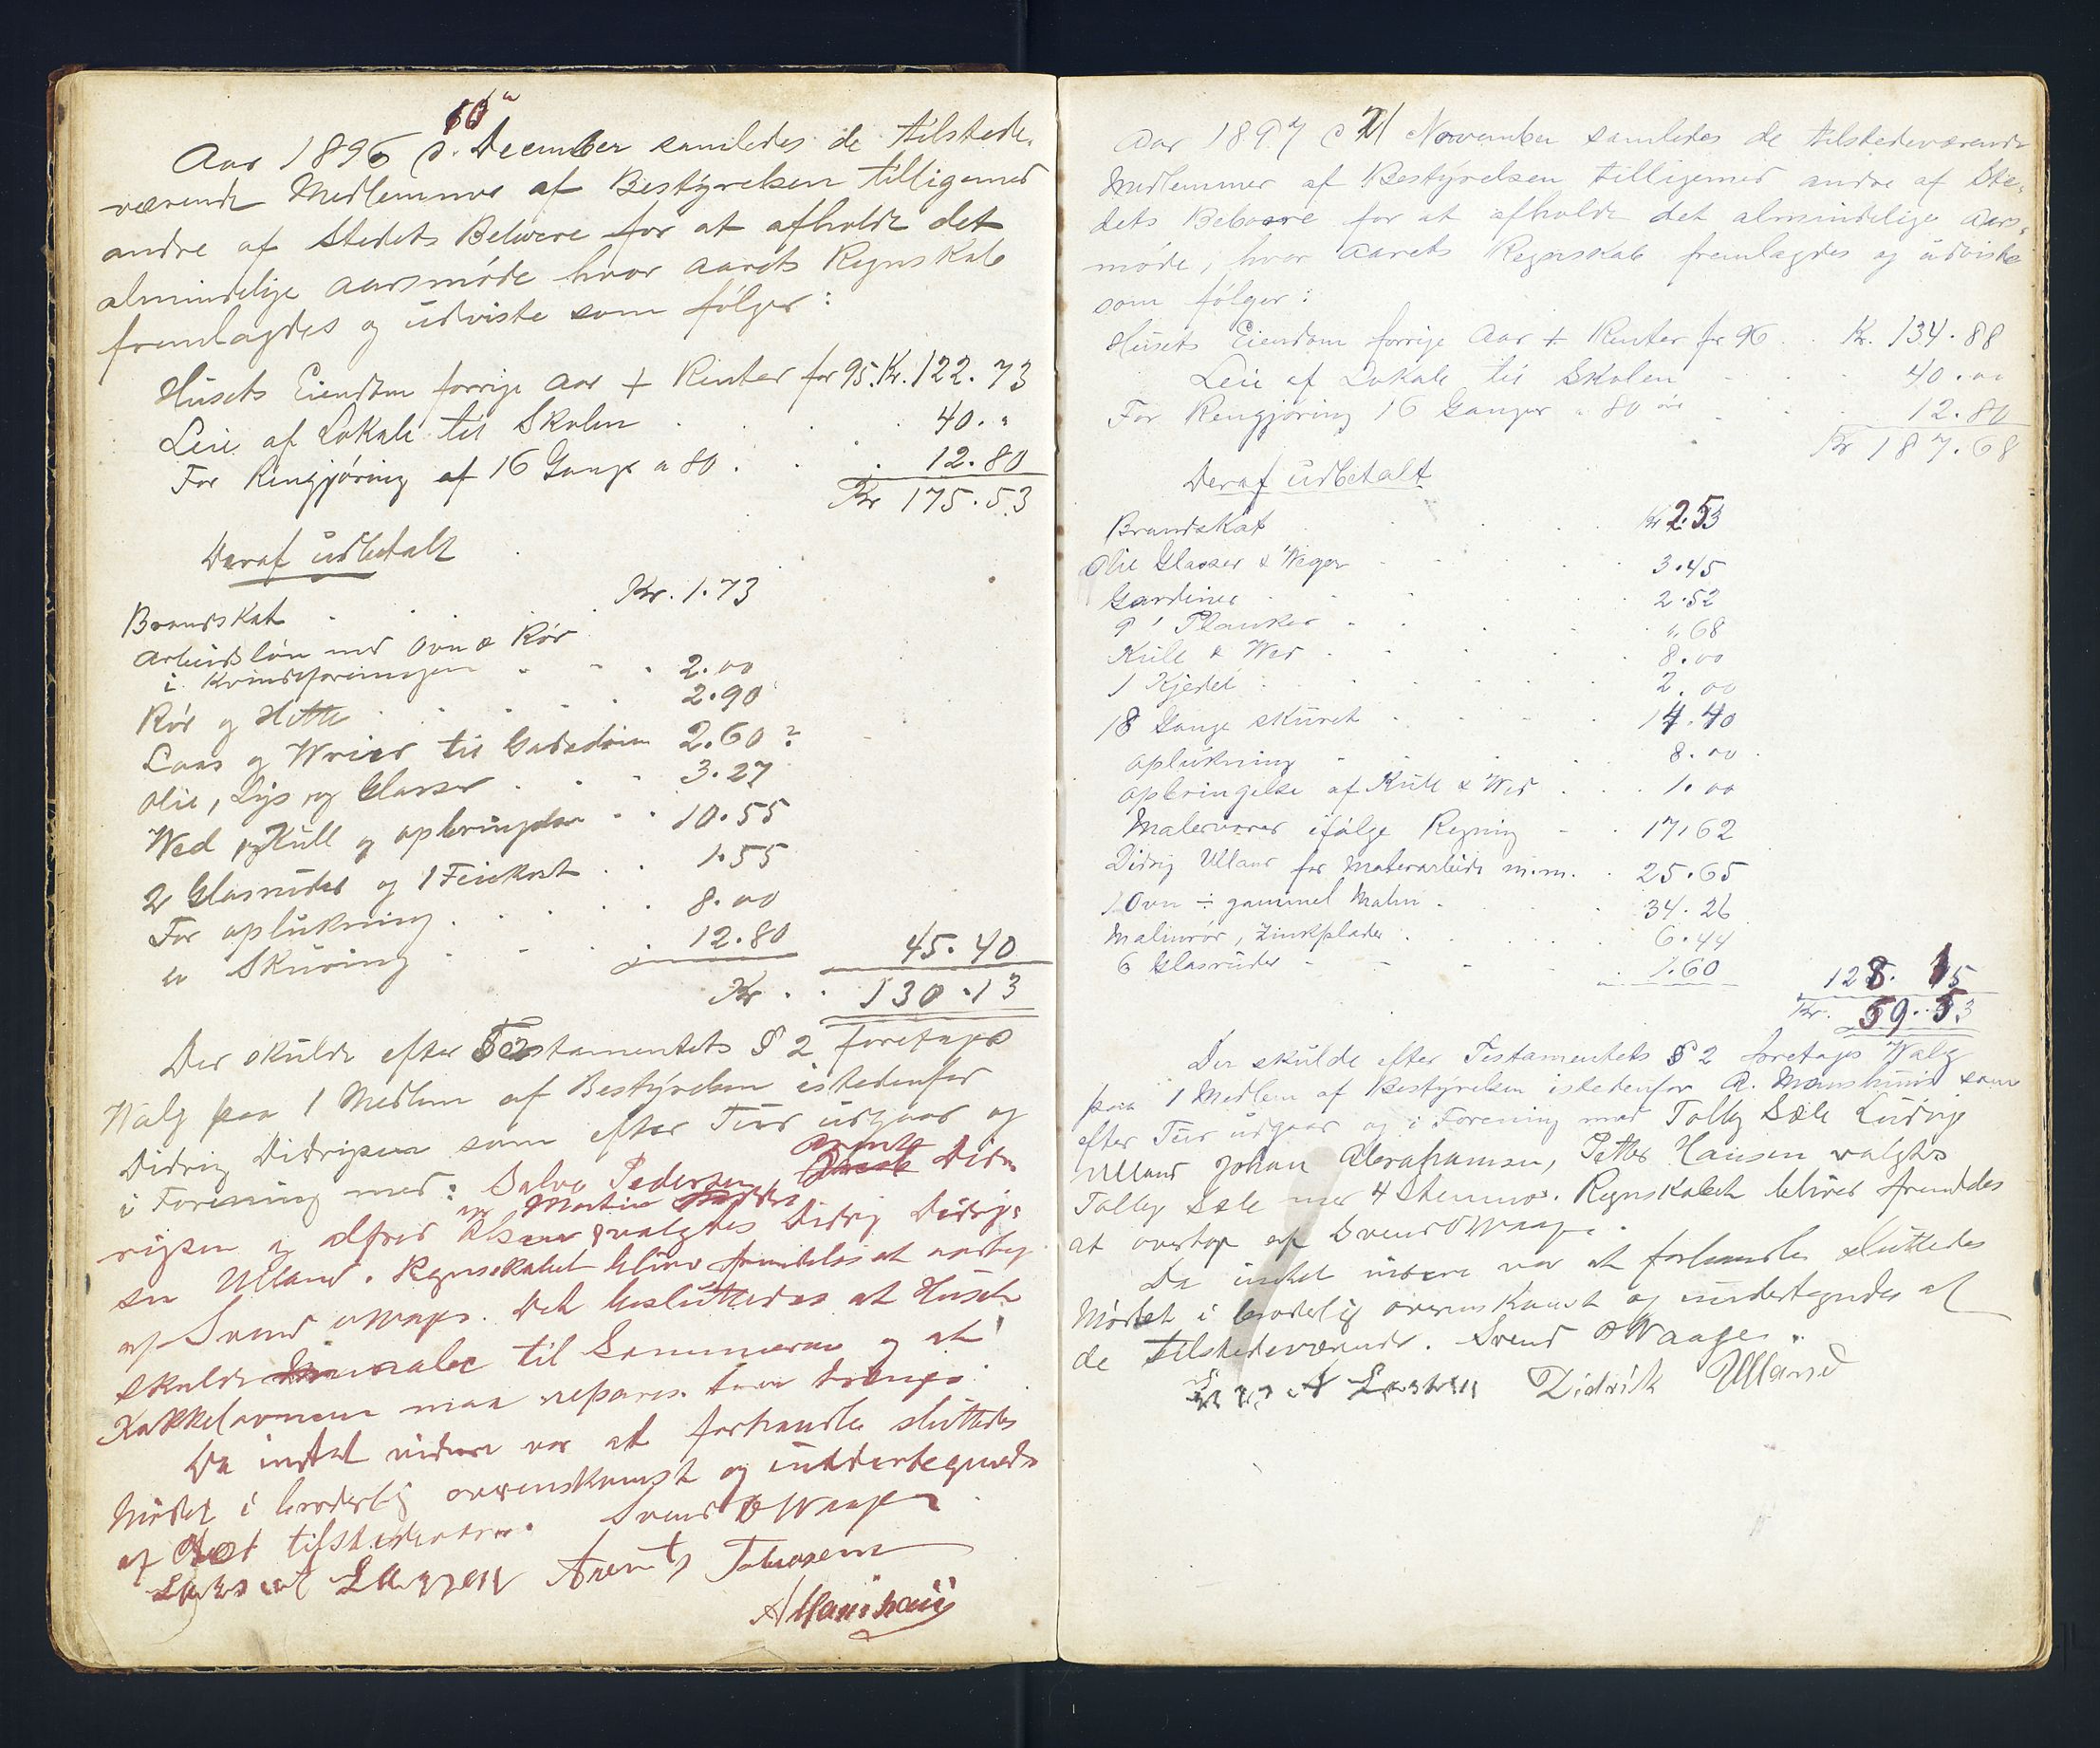 Aar 1896 d. 10de December samledes de tilstede-
værende Medlemmer af Bestyrelsen tilligemed
andre af Stedets Beboere for at afholde det
almindelige Aarsmøde hvor Aarets Regnskab
fremlagdes og udviste som følger:
Husets Eiendom forrige Aar + Renter for 95. Kr. 122.73
Leie af Lokale til Skolen . . . . 40."
For Rengjøring af 16 Gange a 80 . . . 12.80
Kr 175.53
Deraf udbetalt
Brandskat . . . Kr. 1.73
Arbeidsløn med Ovn & Rør
i Kvindeforeningen . . . 2.00
Rør og Hette . . . . 2.90
Laas og Wrier til Gadedøren 2.60
Olie, Lys og Glasser . . . 3.27
Wed og Kull og opbringelse . . 10.55
2 Glasruder og 1 Feiekost . . 1.55
For oplukning . . . . . 8.00
" Skuring . . . . 12.80 45.40
Kr . . 130.13
Der skulde efter Testamentets § 2 foretages
Walg paa 1 Medlem af Bestyrelsen istedenfor
Didrig Didrigsen som efter Tur udgaar og
i Forening med: Salve Pedersen, Didr-
Martin
rigsen og Alfred Olsen valgtes Didrig Didrig-
sen Ulland. Regnskabet bliver fremdeles at
af Svend O Waage. Det besluttedes at Huset
skulde males til Sommeren og at
Kakkelovnen maa repares. trænges
Da indtet videre var at forhandle sluttedes
Mødet i broderlig overenskomst og undertegnedes
af de tilstedeværen. Svend O Waage
Larsen Arent Tobiasen
A Monshaũ
Aar 1897 d 21 November samledes de tilstedeværende
Medlemmer af Bestyrelsen tilligemed andre af Ste-
dets Beboere for at afholde det almindelige Aars-
møde, hvor Aarets Regnskab fremlagdes og udviste
som følger:
Husets Eiendom forrige Aar + Renter for 96 . . Kr. 134.88
Leie af Lokale til Skolen - - - 40.00
For Rengjøring 16 Ganger a 80 øre . . . 12.80
Kr 187.68
Deraf udbetalt
Brandskat . . . . Kr 2.53
Olie Glasser & Weger - - - 3.45
Gardiner . . . . 2.52
9' Planker - - - ".68
Kull & Wed . . . . 8.00
1 Kjedel . . . . 2.00
18 Gange skuret . . . 14.40
oplukning - - - 8.00
opbringelse af Kull & Wed . . . 1.00
Malervarer ifølge Regning - . 17.62
Didrig Ulland for Malerarbeide m.m. . 25.65
1 Ovn ÷ gammel Malm . . . 34.26
Malmrør, Zinkplader . . . . 6.44
6 Glasruder - - - - 1.60 128.15
Kr. 59.53
Der skulde efter Testamentets § 2 foretages Walg
paa 1 Medlem af Bestyrelsen istedenfor A. Monshaũ som
efter Tur udgaar og i Forening med Tolley Sæle Ludvig
Ulland Johan Abrahamsen, Petter Hansen valgtes
Tolley Sæle med 4 Stemmer. Regnskabet bliver fremdeles
at overtage af Svend O Waage.
Da indtet videre var at forhandle sluttedes
Mødet i broderlig overenskomst og undertegnedes af
de tilstedeværende. Svend O Waage.
A Larsen Didrik Ulland